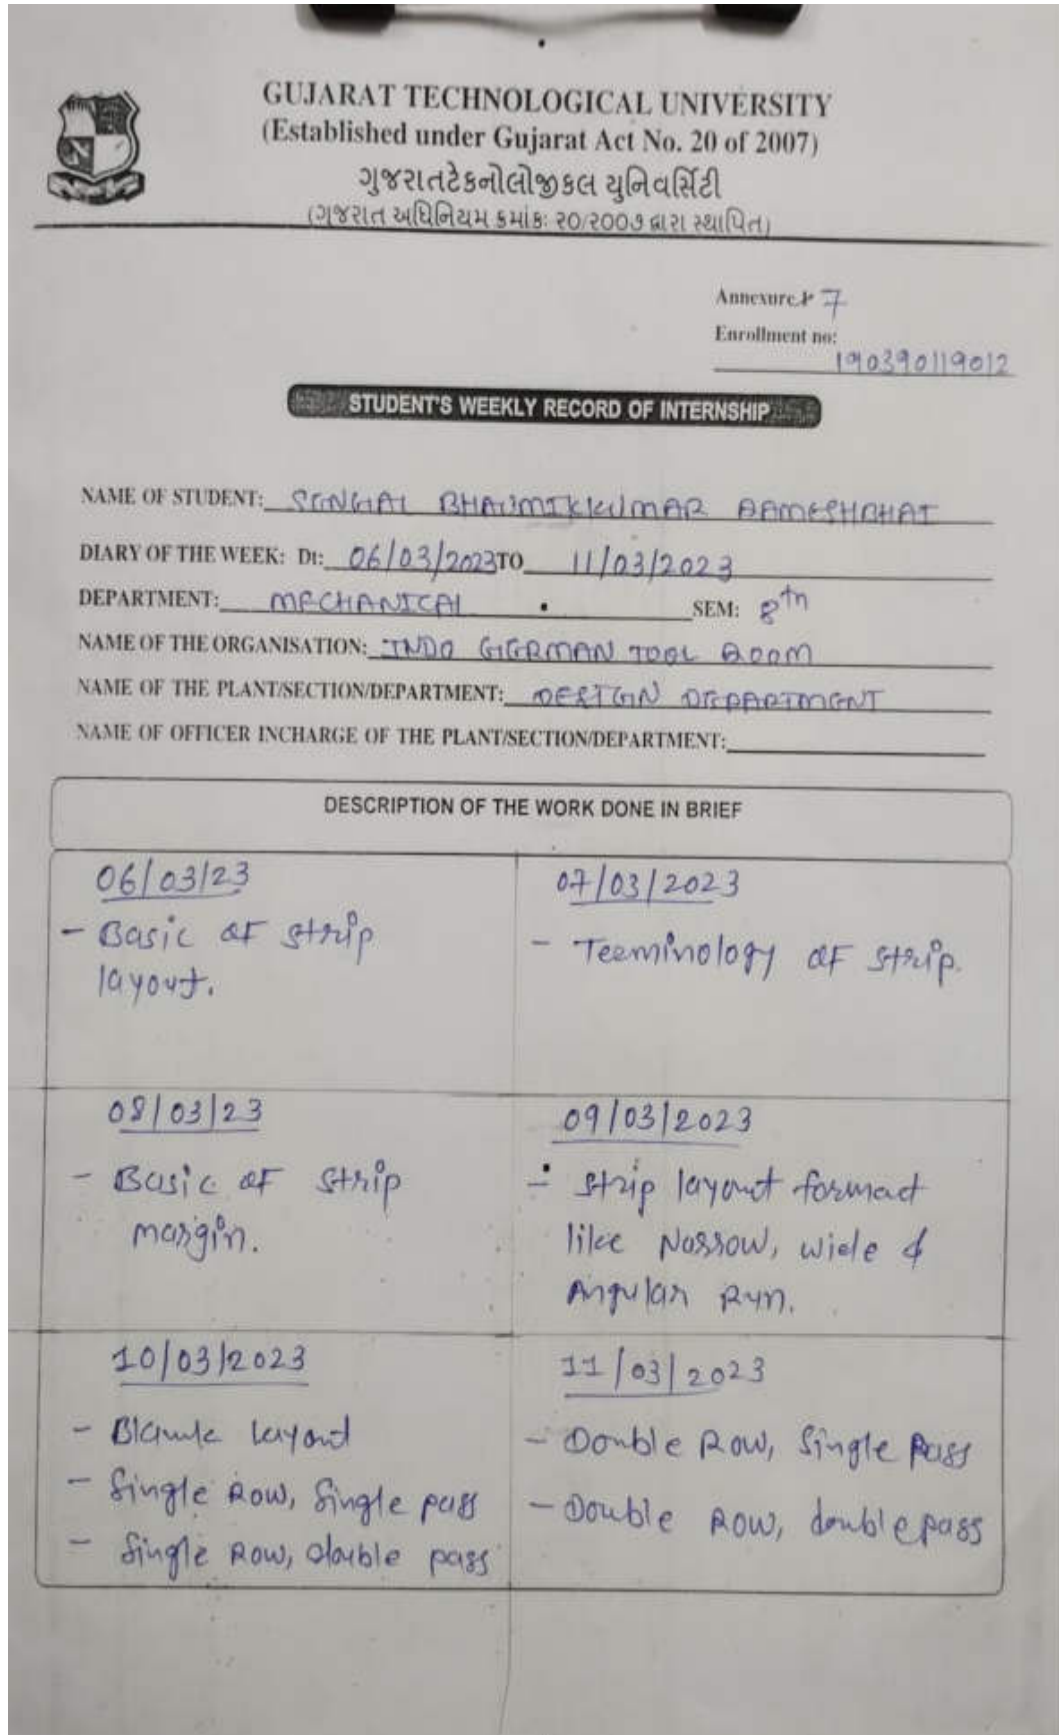 GUJARAT TECHNOLOGICAL UNIVERSITY
(Established under Gujarat Act No. 20 of 2007)
ગુજરાતટેકનોલોજીકલ યુનિવર્સિટી
(ગુજરાત અધિનિયમ ક્રમાંકઃ ૨૦/૨૦૦૭ દ્વારા સ્થાપિત)
Annexure 7
Enrollment no:
190390119012
STUDENT'S WEEKLY RECORD OF INTERNSHIP
NAME OF STUDENT: BHAUMIKKUMAR RAMESHBHAI
DIARY OF THE WEEK: Dt: 06/03/2023 TO 11/03/2023
DEPARTMENT: MECHANICAL SEM: 8th
NAME OF THE ORGANISATION: INDO GERMAN TOOL ROOM
NAME OF THE PLANT/SECTION/DEPARTMENT: DESIGN DEPARTMENT
NAME OF OFFICER INCHARGE OF THE PLANT/SECTION/DEPARTMENT:
DESCRIPTION OF THE WORK DONE IN BRIEF
06/03/23
- Basic of strip
layout.
07/03/2023
- Terminology of strip.
08/03/23
- Basic of strip
margin.
09/03/2023
- strip layout formact
like Narrow, wide &
Angular Run.
10/03/2023
- Blank layout
- Single Row, Single pass
- Single Row, double pass
11/03/2023
- Double Row, Single Pass
- Double Row, double pass